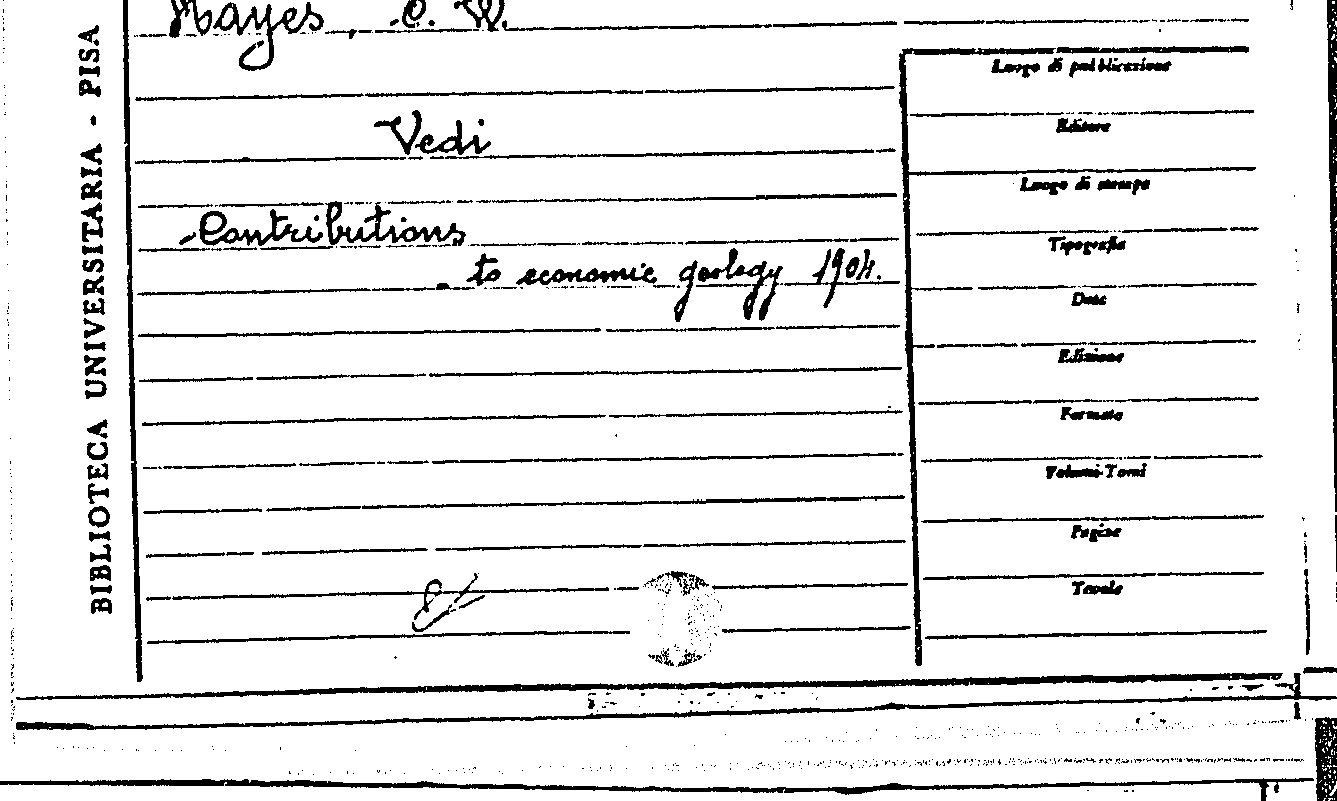 Hayes, C. W.
Vedi
Contributions
to economic geology 1904.
BIBLIOTECA UNIVERSITARIA - PISA
Luogo di pubblicazione
Editore
Luogo di stampa
Tipografia
Data
Edizione
Formato
Volumi-Tomi
Pagine
Tavole